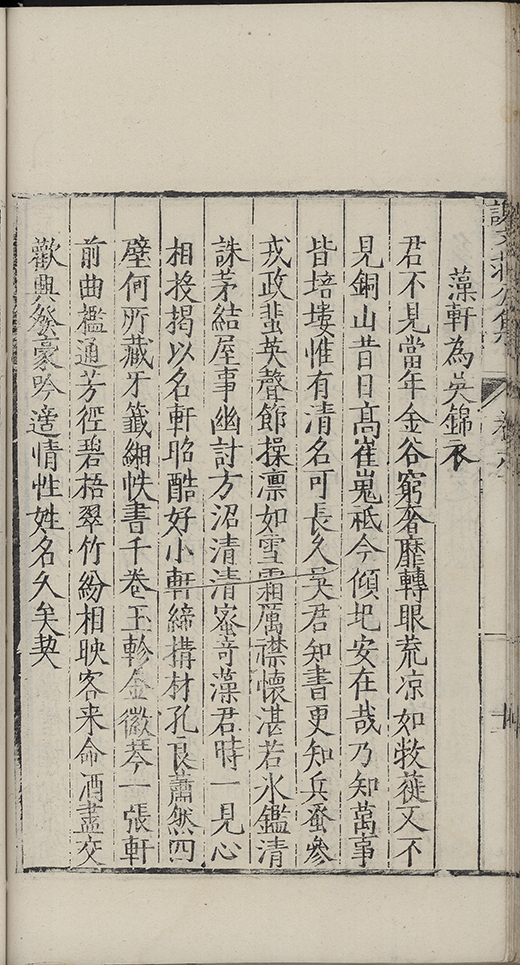 藻軒為吳錦衣
君不見當年金谷窮奢靡轉眼荒凉如牧蓰又不
見銅山昔日高崔嵬祗今傾圮安在哉乃知萬事
皆培塿惟有清名可長久吳君知書更知兵蚤參
戎政蜚英聲節操凛如雪霜厲襟懷湛若氷鑑清
誅茅結屋事幽討方沼清清蜜奇藻君時一見心
相授揭以名軒昭酷好小軒締搆材孔良蕭然四
壁何所藏牙籤緗帙書千卷玉軫金徽琴一張軒
前曲檻通芳徑碧梧翠竹紛相映客来命酒盡交
歡興發豪吟適情性姓名久矣契